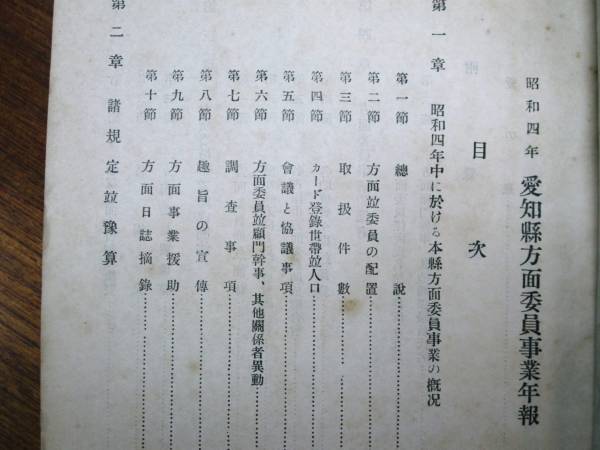 昭和四年 愛知縣方面委員事業年報
目次
第一章 昭和四年中に於ける本縣方面委員事業の概況
第一節 總說
第二節 方面竝委員の配置
第三節 取扱件數
第四節 カード登錄世帶竝人口
第五節 會議と協議事項
第六節 方面委員竝顧問幹事、其他關係者異動
第七節 調查事項
第八節 趣旨の宣傳
第九節 方面事業援助
第十節 方面日誌摘錄
第二章 諸規定竝豫算